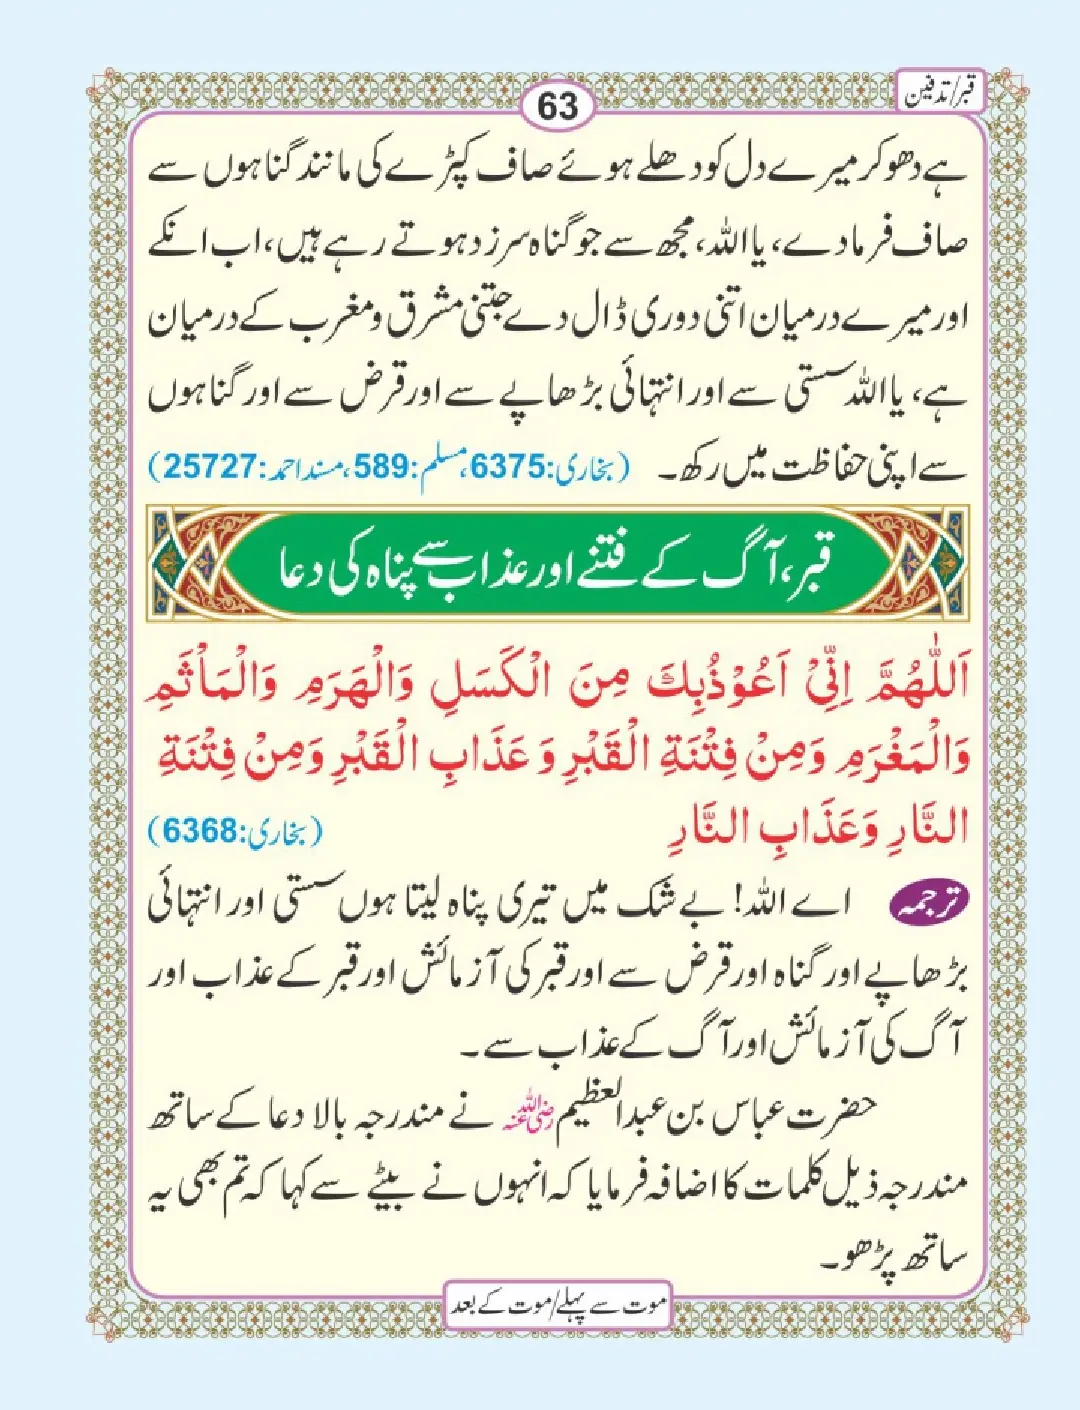 قبر/تدفین
63
ہے دھو کر میرے دل کو دھلے ہوئے صاف کپڑے کی مانند گناہوں سے
صاف فرمادے، یا اللہ، مجھ سے جو گناہ سرزد ہوتے رہے ہیں، اب انکے
اور میرے درمیان اتنی دوری ڈال دے جتنی مشرق و مغرب کے درمیان
ہے، یا اللہ سستی سے اور انتہائی بڑھاپے سے اور قرض سے اور گناہوں
سے اپنی حفاظت میں رکھ۔ (بخاری:6375، مسلم:589، مسند احمد:25727)
قبر، آگ کے فتنے اور عذاب سے پناہ کی دعا
اَللّٰهُمَّ اِنِّیْ اَعُوْذُبِكَ مِنَ الْكَسَلِ وَالْهَرَمِ وَالْمَاْثَمِ
وَالْمَغْرَمِ وَمِنْ فِتْنَةِ الْقَبْرِ وَ عَذَابِ الْقَبْرِ وَمِنْ فِتْنَةِ
النَّارِ وَعَذَابِ النَّارِ (بخاری:6368)
ترجمہ اے اللہ! بے شک میں تیری پناہ لیتا ہوں سستی اور انتہائی
بڑھاپے اور گناہ اور قرض سے اور قبر کی آزمائش اور قبر کے عذاب اور
آگ کی آزمائش اور آگ کے عذاب سے۔
حضرت عباس بن عبدالعظیم رضی اللہ عنہ نے مندرجہ بالا دعا کے ساتھ
مندرجہ ذیل کلمات کا اضافہ فرمایا کہ انہوں نے بیٹے سے کہا کہ تم بھی یہ
ساتھ پڑھو۔
موت سے پہلے/موت کے بعد